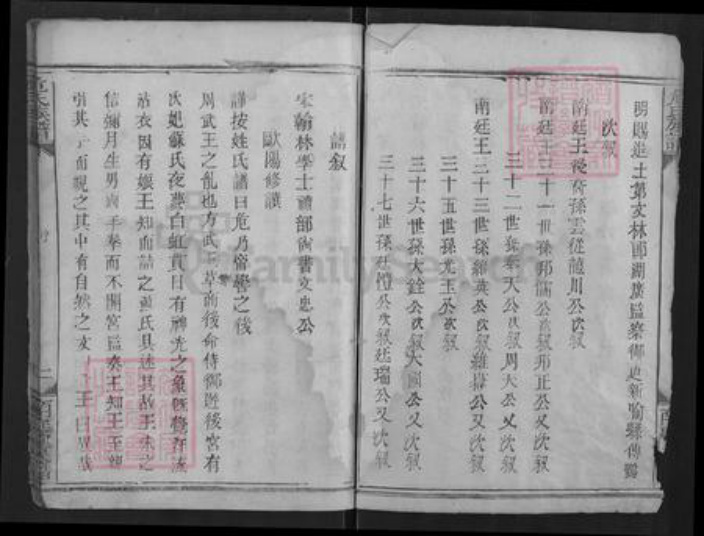 明賜進士第文林郎湖廣監察御史新喻縣傅
次叙
南廷王從奇孫雲從龍川公次叙
南廷王三十一世孫邦儒公次叙邦正公又次叙
三十二世孫泰天公次叙周大公又次叙
南廷王三十三世孫維英公次叙維揚公又次叙
三十五世孫尤玉公次叙
三十六世孫大銓公次叙大國公又次叙
三十七世孫廷禮公次叙廷瑞公又次叙
譜叙
宋翰林學士禮部尚書文忠公
歐陽修譔
謹按姓氏譜曰危乃帝嚳之後
周武王之胤也方武王草創後命侍御進後宮有
次妃蘇氏夜夢白虹貫日有神光之象既覺有流
於衣因有娠王知而詰之蘇氏具述其故王殊之
信彌月生男兩手拳而不開宮監奏王知王至親
引其手而視之其中有自然之文 王曰異哉
危氏族譜
FamilySearch